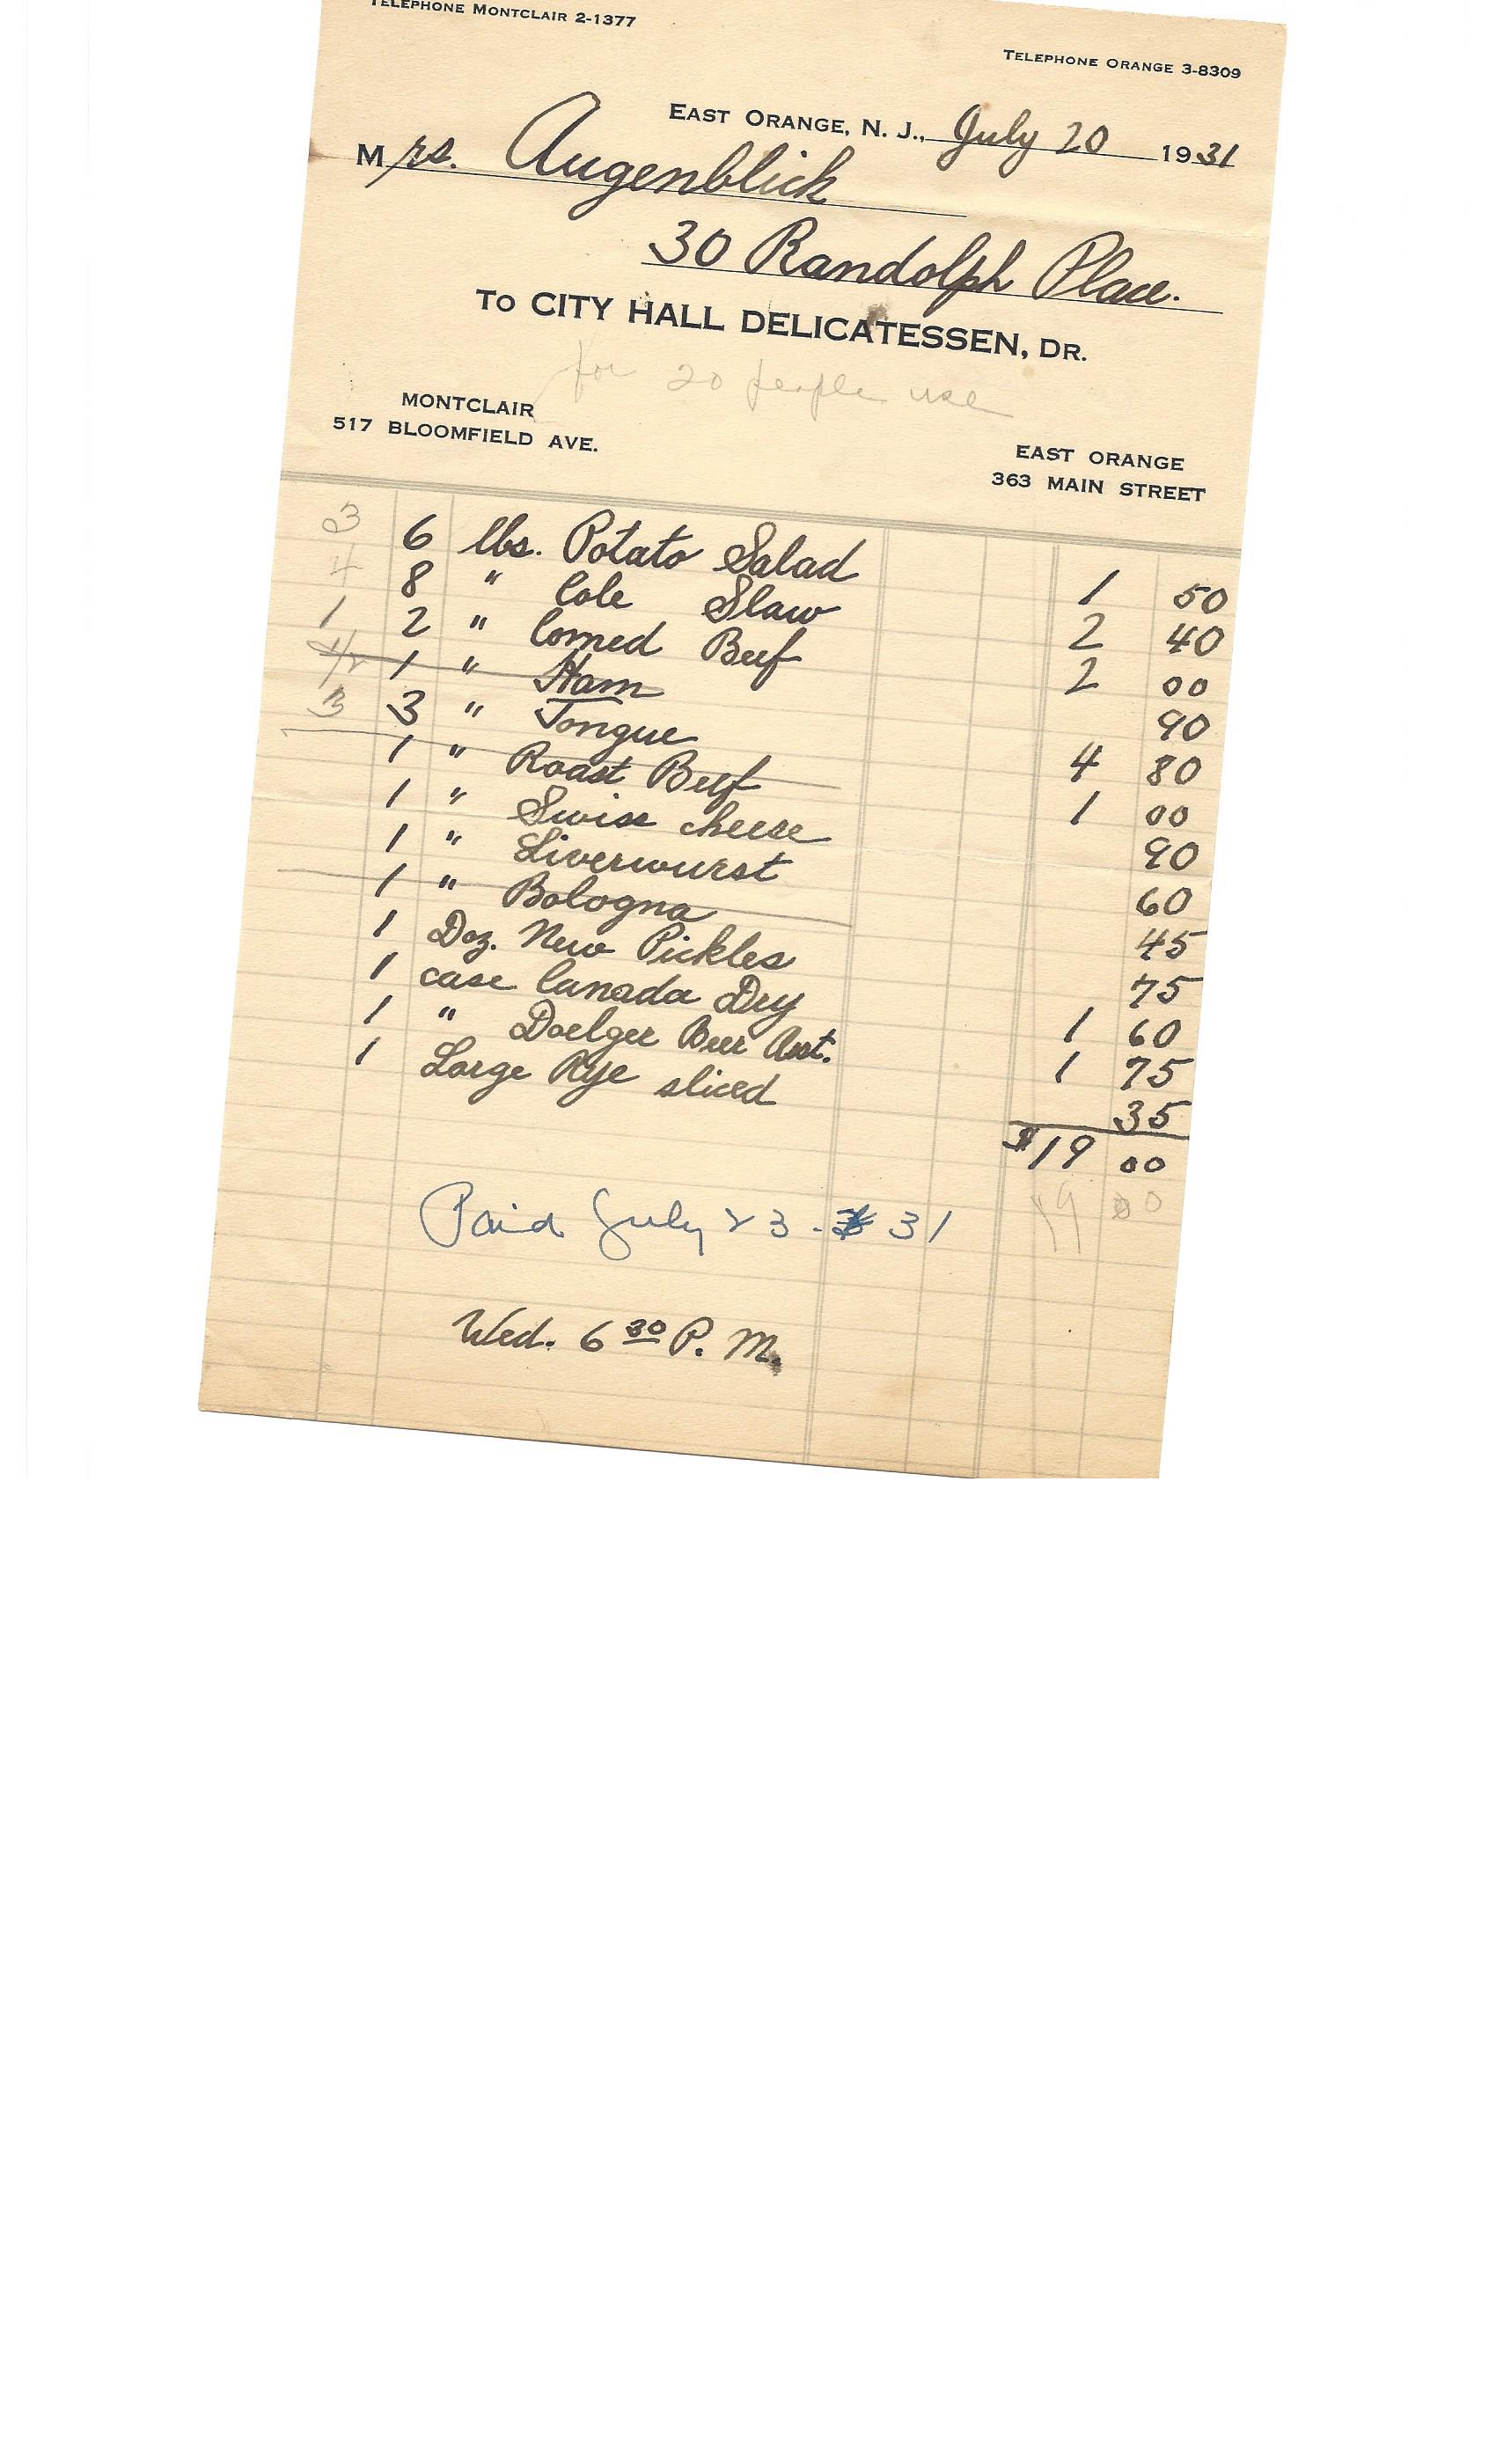 TELEPHONE MONTCLAIR 2-1377
TELEPHONE ORANGE 3-8309
EAST ORANGE, N. J., July 20 1931
Mrs. Augenblick
30 Randolph Place.
TO CITY HALL DELICATESSEN, DR.
for 20 people use
MONTCLAIR
517 BLOOMFIELD AVE.
EAST ORANGE
363 MAIN STREET
3 6 lbs. Potato Salad 1 50
4 8 " Cole Slaw 2 40
1 2 " Corned Beef 2 00
1/2 1 " Ham 90
3 3 " Tongue 4 80
1 " Roast Beef 1 00
1 " Swiss cheese 90
1 " Liverwurst 60
1 " Bologna 45
1 Doz. New Pickles 75
1 case Canada Dry 1 60
1 " Doelger Beer Asst. 1 75
1 Large Rye sliced 35
$19 00
19 00
Paid July 23 - 31
Wed. 6 30 P. M.